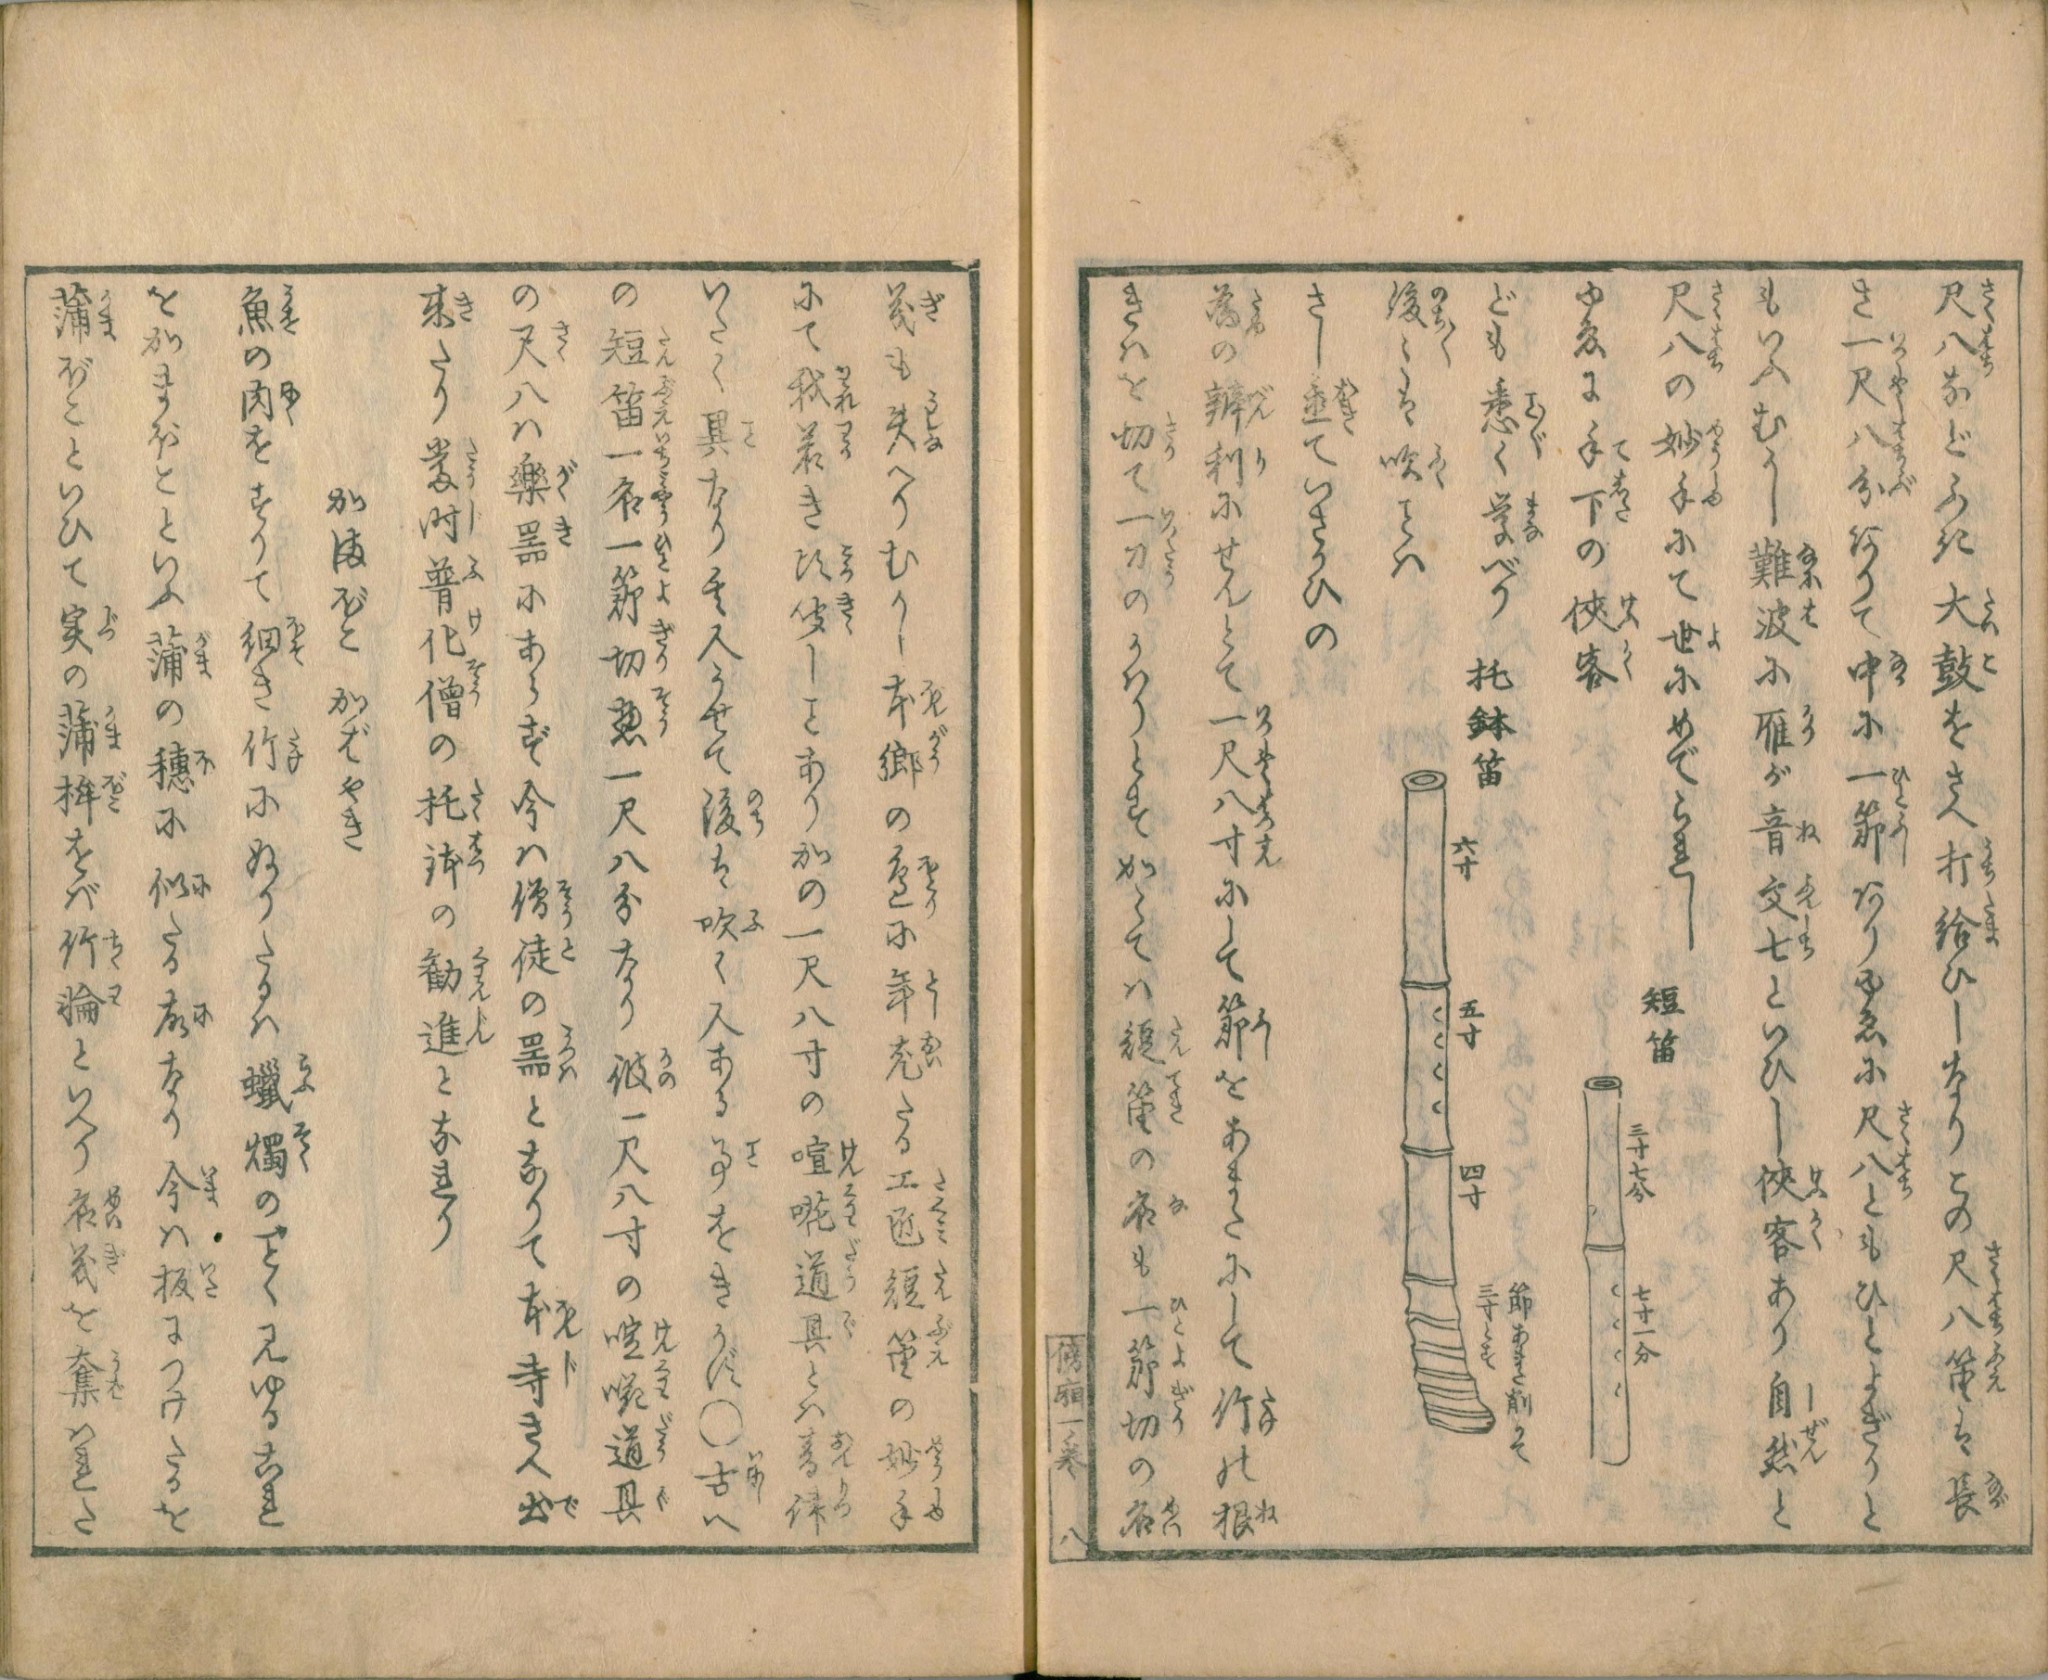 尺八などふえ大鼓をさへ打給ひしなりこの尺八笛は長
さ一尺八分ありて中に一節ありゆゑに尺八ともひとよぎりと
もいふむかし難波に雁が音文七といひし侠客あり自然と
尺八の妙手にて世にめでられし
短笛
三寸七分
七寸一分
ゆゑに手下の侠客
ども悉く学べり
托鉢笛
六寸
五寸
四寸
三寸
節
後々は吹ことは
さし置ていさかひの
為の辨利にせんとて一尺八寸にして節をあまたにして竹の根
きはを切て一刀のかはりとすかくては短笛の名も一節切の名
傍廂一ノ巻 八
義も失へりむかし本郷の辺に年老たる工匠短笛の妙手
にて我若き頃受しことありかの一尺八寸の喧嘩道具とは音律
いたく異なり
人あることをきかず〇古へ
の短笛一名一節切惣一尺八分なり彼一尺八寸の喧嘩道具
の尺八は樂器にあらず今は僧徒の器となりて本寺さへ出
来たり當時普化僧の托鉢の勧進となれり
かまぼこ かばやき
魚の肉をすりて細き竹にぬりたるは蠟燭のごとく見ゆるこれ
をかまぼことといふ蒲の穂に似たる故なり今は板につけたるを
蒲ぼこといひて実の蒲桙をば竹輪といへり名義を奪はれた